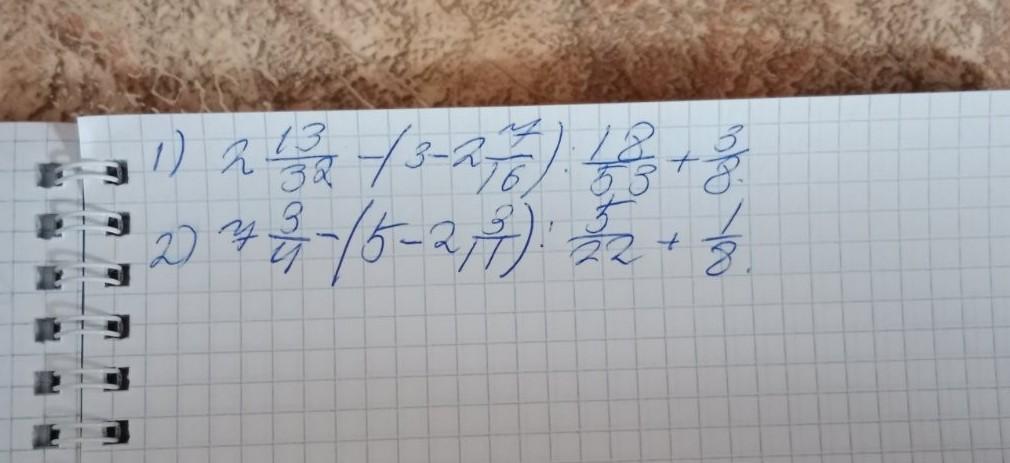 1) 2 13/32 - (3 - 2 7/16) : 18/53 + 3/8.
2) 7 3/4 - (5 - 2 3/11) : 5/22 + 1/8.